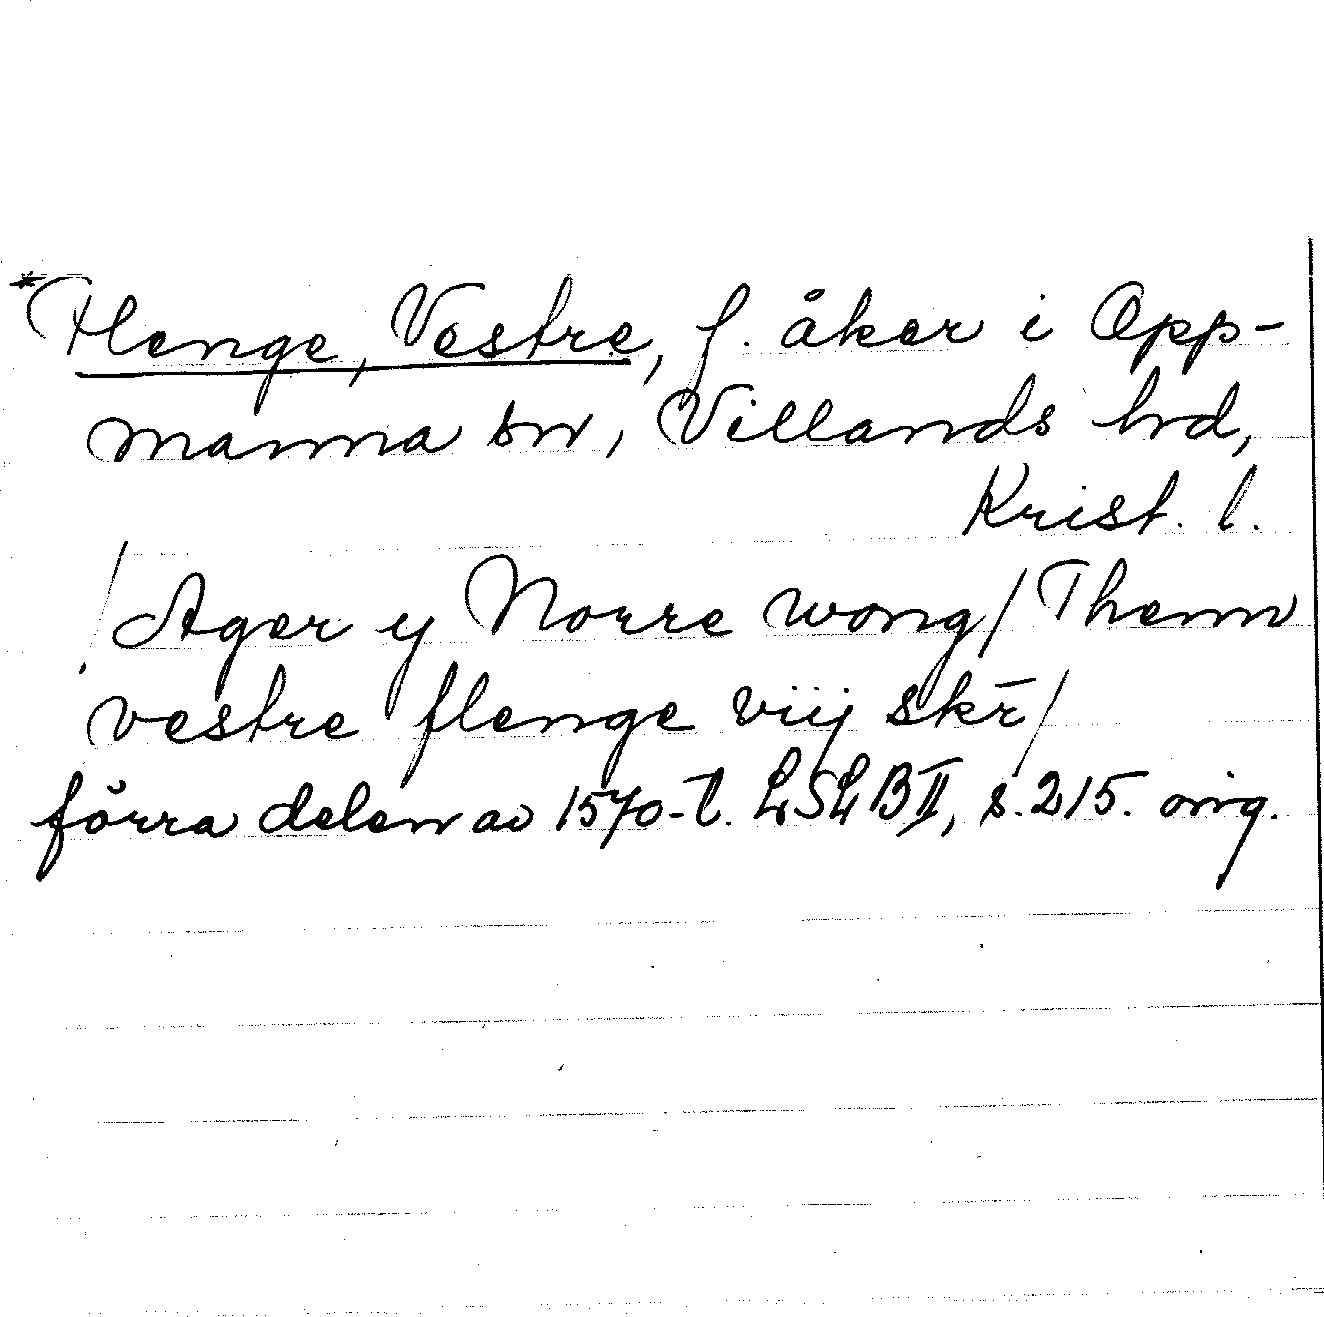 *Flenge, Vestre, f. åker i Opp-
manna sn, Villands hd,
Krist. l.
/Ager y Norre wong/Themn
vestre flenge viij skr̄/
förra delen av 1570-t. LSLB II, s. 215. orig.